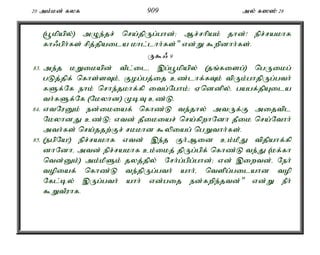 20 அம்மன் கலக 909 அல் கஸஸ் 28
(பூமியில்) அழுந்தச் செய்திருப்பான்; ஆச்சரியம் தான்! நிச்சயமாக
காஃபிர்கள் சித்தியடைய மாட்டார்கள்" என்று கூறினார்கள்.
ருகூஃ 9
83. அந்த மறுமையின் வீட்டை, இப்பூமியில் (தங்களைப்) பெருமைப்
படுத்திக் கொள்ளவும், குழப்பத்தை உண்டாக்கவும் விரும்பாதிருப்பவர்
களுக்கே நாம் சொந்தமாக்கி வைப்போம்; ஏனெனில், பயபக்தியுடைய
வர்களுக்கே (மேலான) முடிவு உண்டு.
84. எவரேனும் நன்மையைக் கொண்டு வந்தால் அவருக்கு அதைவிட
மேலானது உண்டு; எவன் தீமையைச் செய்கிறானோ தீமை செய்வோர்
அவர்கள் செய்ததற்குச் சமமான கூலியைப் பெறுவார்கள்.
85. (நபியே!) நிச்சயமாக எவன் இந்த குர்ஆனை உம்மீது விதியாக்கி
னானோ, அவன் நிச்சயமாக உம்மைத் திருப்பிக் கொண்டு வந்து (மக்கா
வென்னும்) அம்மீளும் தலத்தில் சேர்ப்பிப்பான்; என் இறைவன், நேர்
வழியைக் கொண்டு வந்திருப்பவர் யார், வெளிப்படையான வழி
கேட்டில் இருப்பவர் யார் என்பதை நன்கறிந்தவன்" என்று நீர்
கூறுவீராக.